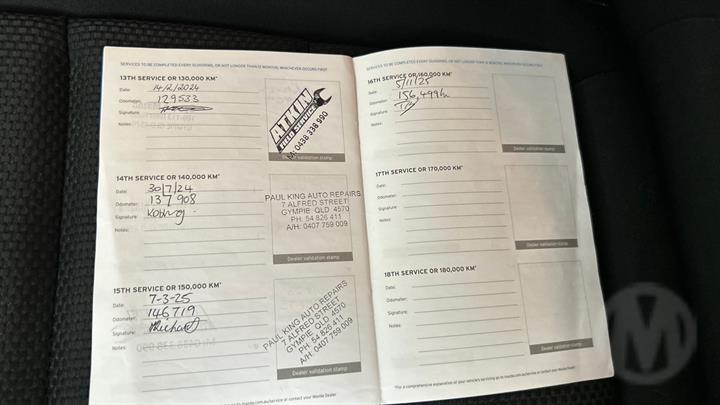 SERVICES TO BE COMPLETED EVERY 10,000KMS, OR NOT LONGER THAN 12 MONTHS, WHICHEVER OCCURS FIRST
13TH SERVICE OR 130,000 KM*
Date: 14/2/2024
Odometer: 129533
Signature:
Notes:
ATKIN
FIELD SERVICE
M: 0438 338 990
Dealer validation stamp
14TH SERVICE OR 140,000 KM*
Date: 30/7/24
Odometer: 137908
Signature:
Notes:
PAUL KING AUTO REPAIRS
7 ALFRED STREET
GYMPIE QLD 4570
PH: 54 826 411
A/H: 0407 759 009
Dealer validation stamp
15TH SERVICE OR 150,000 KM*
Date: 7-3-25
Odometer: 146719
Signature: Michael
Notes:
PAUL KING AUTO REPAIRS
7 ALFRED STREET
GYMPIE QLD 4570
PH: 54 826 411
A/H: 0407 759 009
Dealer validation stamp
SERVICES TO BE COMPLETED EVERY 10,000KMS, OR NOT LONGER THAN 12 MONTHS, WHICHEVER OCCURS FIRST
16TH SERVICE OR 160,000 KM*
Date: 5/11/25
Odometer: 156,499km
Signature:
Notes:
Dealer validation stamp
17TH SERVICE OR 170,000 KM*
Date:
Odometer:
Signature:
Notes:
Dealer validation stamp
18TH SERVICE OR 180,000 KM*
Date:
Odometer:
Signature:
Notes:
Dealer validation stamp
*For a comprehensive explanation of your vehicle's servicing go to mazda.com.au/service or contact your Mazda Dealer
go to mazda.com.au/service or contact your Mazda Dealer
M